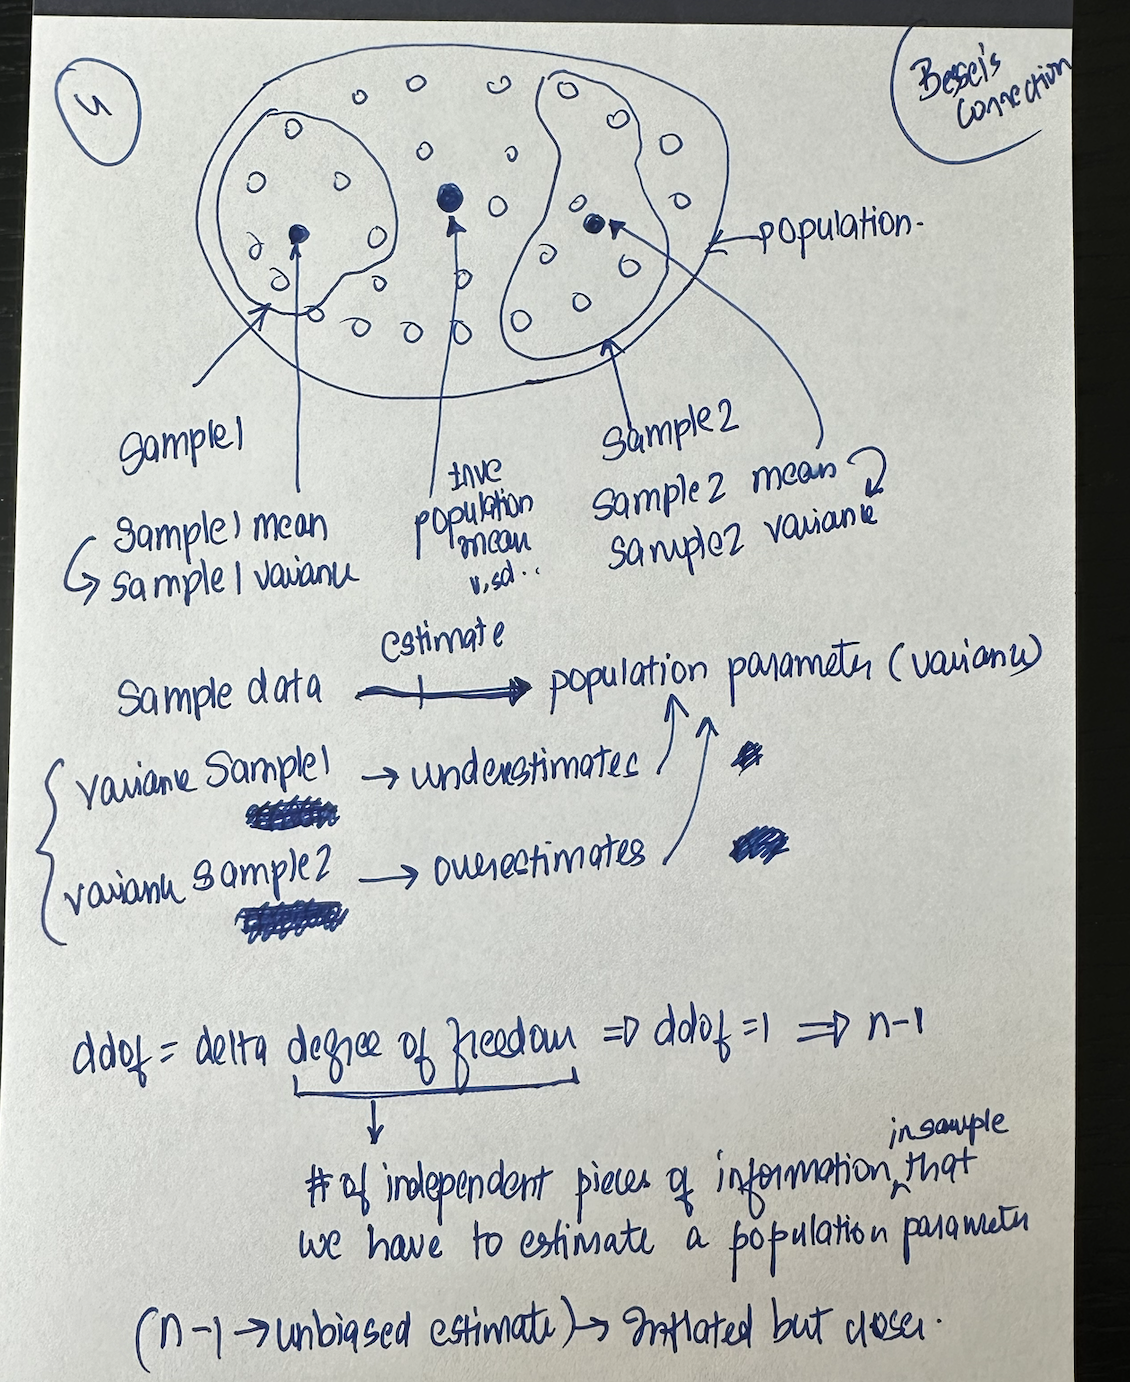 5
Bessel's
Correction
population.
Sample 1
Sample 1 mean
Sample 1 variance
true
population
mean
v, sd..
Sample 2
Sample 2 mean
Sample 2 variance
estimate
Sample data → population parameter (variance)
variance Sample 1 → underestimates
variance Sample 2 → overestimates
ddof = delta degree of freedom ⇒ ddof = 1 ⇒ n-1
in sample
# of independent pieces of information ^ that
we have to estimate a population parameter
(n-1 → unbiased estimate) → Inflated but closer.